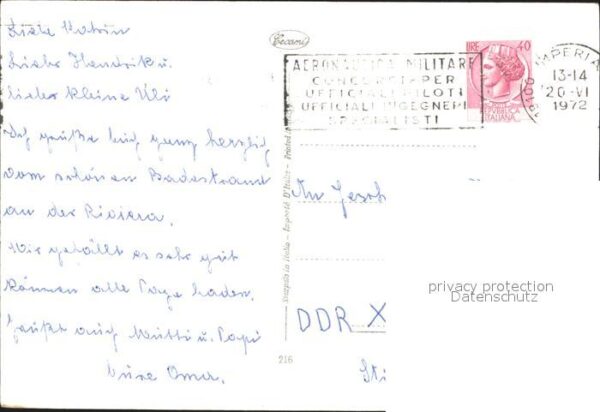 Liebe Katrin
Lieber Hendrik u.
lieber kleine Uli
Ich grüße Euch ganz herzlich
vom schönen Badestrand
an der Riviera.
Mir gefällt es sehr gut
können alle Tage baden.
Grüßt auch Mutti u. Papi
Eure Oma.
Cecami
216
Stampato in Italia - Importé D'Italie - Printed in
AERONAUTICA MILITARE
CONCORSI PER
UFFICIALI PILOTI
UFFICIALI INGEGNERI
SPECIALISTI
LIRE 40
REPVBBLICA
ITALIANA
18100 IMPERIA
13-14
26-VI
1972
An Gesch
DDR X
privacy protection
Datenschutz